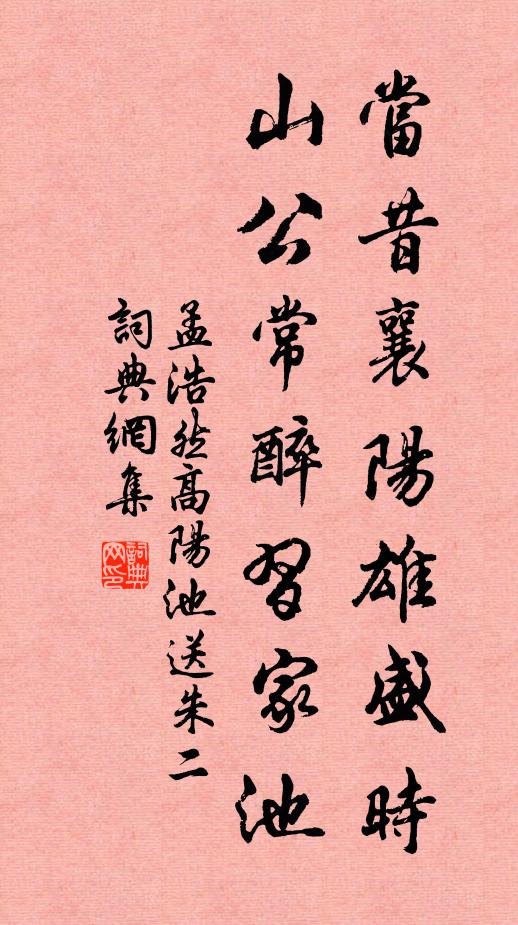 當昔襄陽雄盛時
山公常醉習家池
孟浩然高陽池送朱二
詞典網集
詞典网印